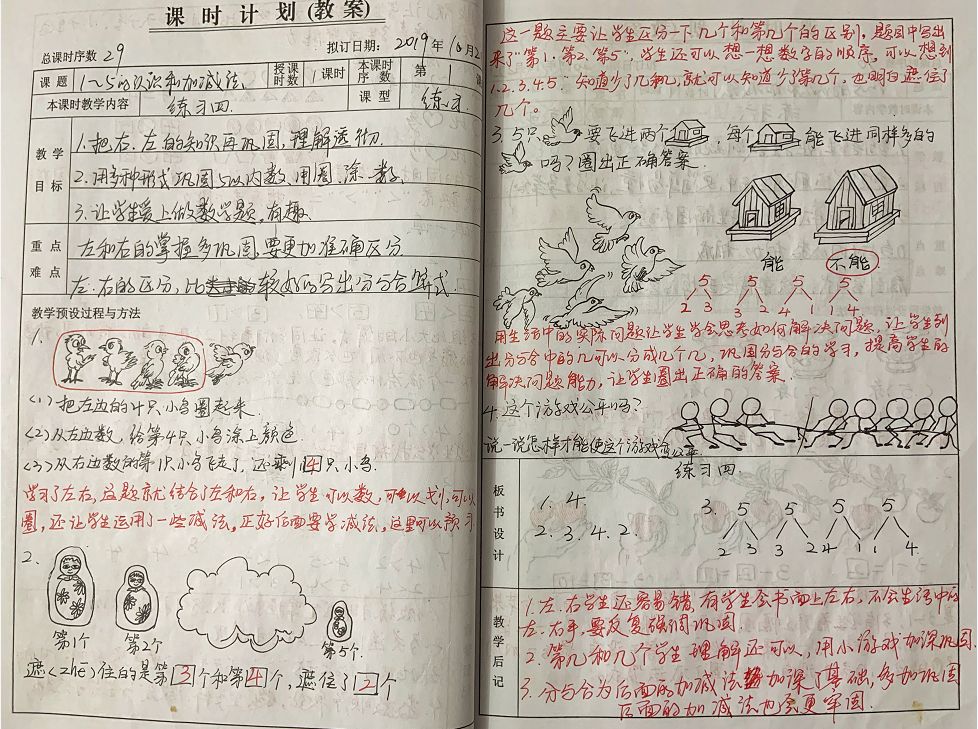 课 时 计 划 (教 案)
总课时序数 29 拟订日期: 2019年10月2
课 题 1～5的认识和加减法 授课时数 1课时 本课时序数 第 1
本课时教学内容 练习四 课 型 练习
教 学 目 标
1.把右、左的知识再巩固,理解透彻.
2.用多种形式巩固5以内数,用圈、涂、数.
3.让学生爱上做数学题,有趣.
重 点 难 点
左和右的掌握多巩固,要更加准确区分
左、右的区分,比较好的写出分与合算式.
教学预设过程与方法
1.
(1)把左边的4只小鸟圈起来.
(2)从左边数,给第4只小鸟涂上颜色.
(3)从右边数的第1只小鸟飞走了,还剩4只小鸟.
学习了左右,这题就结合了左和右,让学生可以数,可以划,可以
圈,还让学生运用了一些减法,正好后面要学减法,这里可以预习.
2.
第1个 第2个 第5个.
遮(zhē)住的是第3个和第4个,遮住了2个
这一题主要让学生区分一下几个和第几个的区别,题目中写出
来了“第1、第2、第5”,学生还可以想一想数字的顺序,可以想到
1.2.3.4.5.知道少了几和几,就可以知道少了第几个,也明白遮住了
几个。
3.5只 要飞进两个 ,每个 能飞进同样多的
吗?圈出正确答案.
能 不能
5 5 5 5
2 3 3 2 4 1 1 4
用生活中的实际问题让学生学会思考如何解决问题,让学生列
出分与合中的几可以分成几个几,巩固分与合的学习,提高学生的
解决问题能力,让学生圈出正确的答案.
4.这个游戏公平吗?
说一说怎样才能使这个游戏公平.
板 书 设 计
练习四
1. 4.
2. 3. 4. 2.
3. 5 5 5 5
2 3 3 2 4 1 1 4
教 学 后 记
1.左、右学生还容易错,有学生会书面上左右,不会生活中的
左、右手,要反复强调巩固.
2.第几和几个学生理解还可以,用小游戏加深巩固.
3.分与合为后面的加减法加深了基础,多加巩固
后面的加减法也会更牢固.